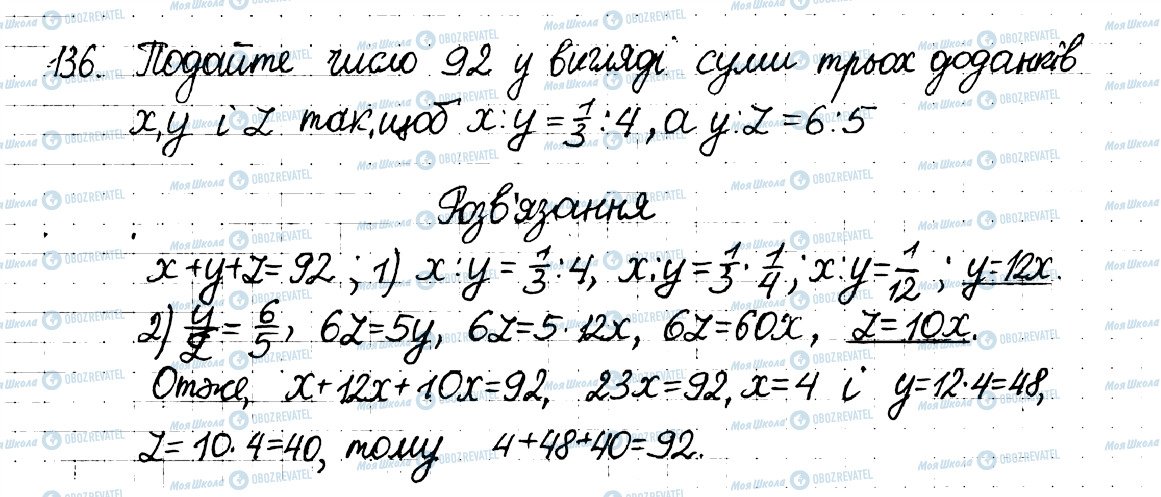 136. Подайте число 92 у вигляді суми трьох доданків
x,y і z так,щоб x:y=1/3:4, а y:z=6:5
Розв'язання
x+y+z=92; 1) x:y=1/3:4, x:y=1/3·1/4; x:y=1/12; y=12x.
2) y/z=6/5, 6z=5y, 6z=5·12x, 6z=60x, z=10x.
Отже, x+12x+10x=92, 23x=92, x=4 і y=12·4=48,
z=10·4=40, тому 4+48+40=92.